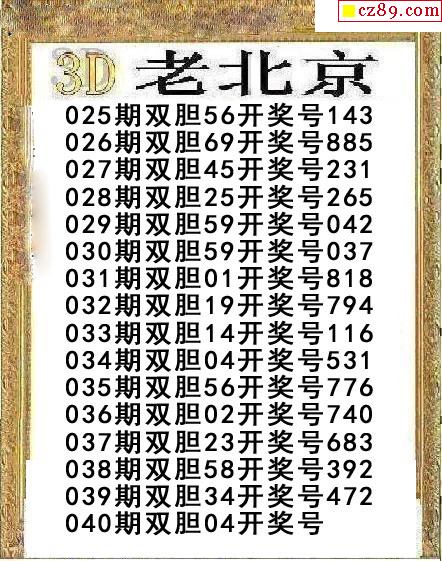 cz89.com
3D 老北京
025期双胆56开奖号143
026期双胆69开奖号885
027期双胆45开奖号231
028期双胆25开奖号265
029期双胆59开奖号042
030期双胆59开奖号037
031期双胆01开奖号818
032期双胆19开奖号794
033期双胆14开奖号116
034期双胆04开奖号531
035期双胆56开奖号776
036期双胆02开奖号740
037期双胆23开奖号683
038期双胆58开奖号392
039期双胆34开奖号472
040期双胆04开奖号